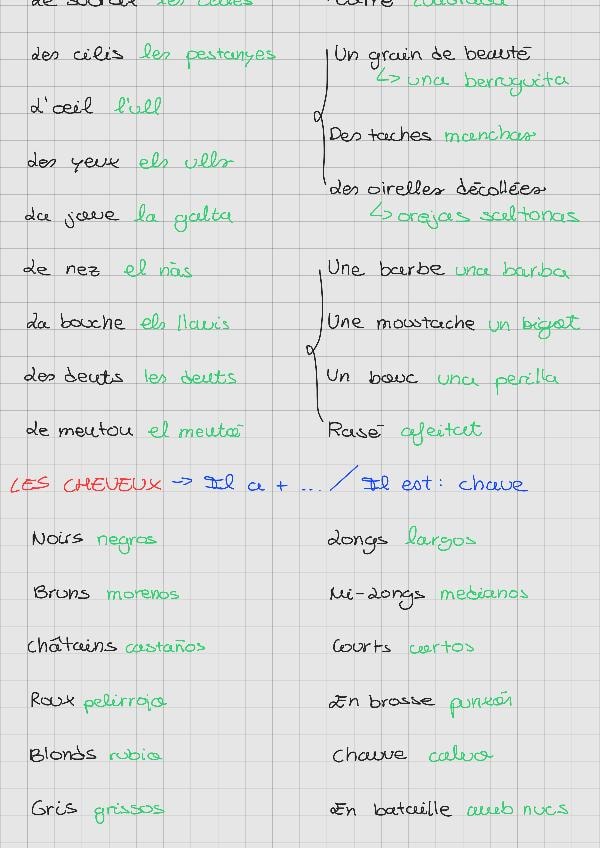 des cilis les pestanyes
d'œil l'ull
des yeux els ulls
da joue la galta
de nez el nàs
da bouche els llavis
des deuts les deuts
de meutou el meutoō
Un grain de beauté
↳ una berruguita
Des taches manchas
des oirelles décollées
↳ orejas saltonas
Une barbe una barba
Une moustache un bigot
Un bouc una perilla
Rasé afeitat
LES CHEVEUX → Il a + ... / Il est: chave
Noirs negros
Bruns morenos
châtains castaños
Roux pelirrojo
Blonds rubio
Gris grissos
Longs largos
Mi-Longs medianos
Courts cortos
En brosse punxón
Chauve calvo
En bataille amb nucs